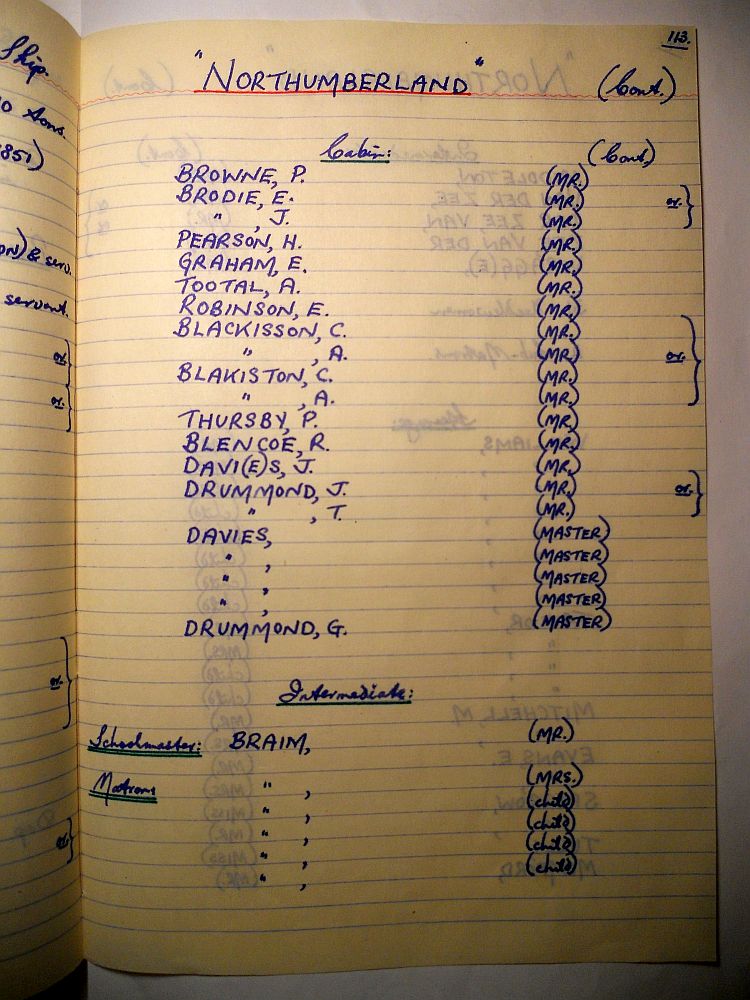 113.
"NORTHUMBERLAND" (Cont.)
Cabin: (Cont.)
BROWNE, P. (MR.)
BRODIE, E. (MR.) or.
" , J. (MR.)
PEARSON, H. (MR.)
GRAHAM, E. (MR.)
TOOTAL, A. (MR.)
ROBINSON, E. (MR.)
BLACKISSON, C. (MR.)
" , A. (MR.) or.
BLAKISTON, C. (MR.)
" , A. (MR.)
THURSBY, P. (MR.)
BLENCOE, R. (MR.)
DAVI(E)S, J. (MR.)
DRUMMOND, J. (MR.) or.
" , T. (MR.)
DAVIES, (MASTER)
" , (MASTER)
" , (MASTER)
" , (MASTER)
DRUMMOND, G. (MASTER)
Intermediate:
Schoolmaster: BRAIM, (MR.)
Matron: " , (MRS.)
" , (child)
" , (child)
" , (child)
" , (child)
Ship.
0 tons.
851)
ON) & serv.
servant.
or.
or.
or.
or.